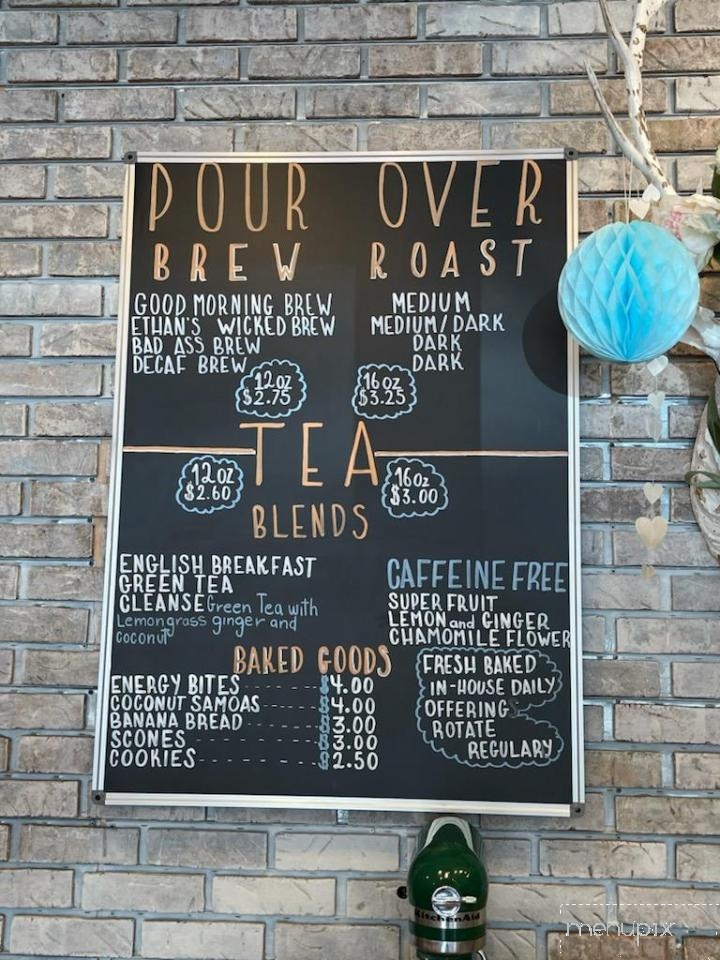 POUR OVER
BREW ROAST
GOOD MORNING BREW MEDIUM
ETHAN'S WICKED BREW MEDIUM/DARK
BAD ASS BREW DARK
DECAF BREW DARK
12oz $2.75
16oz $3.25
TEA
12oz $2.60
16oz $3.00
BLENDS
ENGLISH BREAKFAST
GREEN TEA
CLEANSE Green Tea with
Lemongrass ginger and
coconut
CAFFEINE FREE
SUPER FRUIT
LEMON and GINGER
CHAMOMILE FLOWER
BAKED GOODS
ENERGY BITES ------ $4.00
COCONUT SAMOAS ---- $4.00
BANANA BREAD ------ $3.00
SCONES ------ $3.00
COOKIES ------ $2.50
FRESH BAKED
IN-HOUSE DAILY
OFFERINGS
ROTATE
REGULARY
KitchenAid
menupix